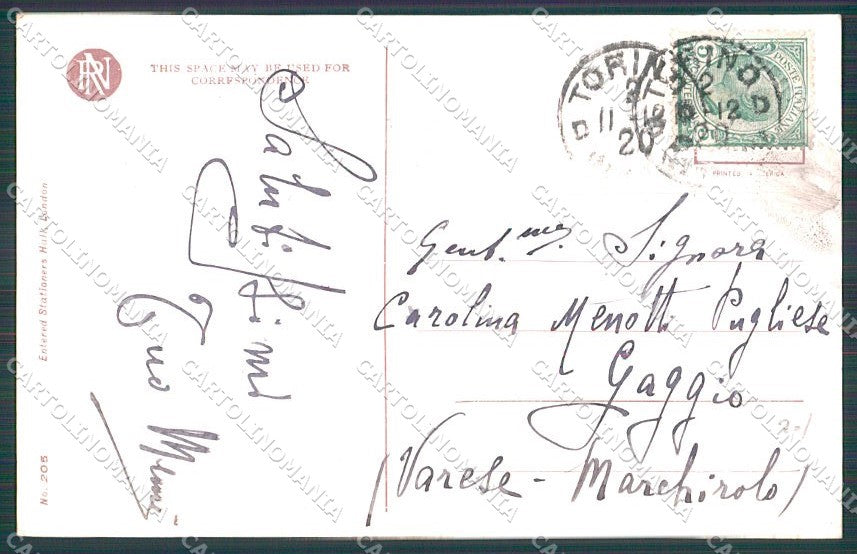 RN
THIS SPACE MAY BE USED FOR
CORRESPONDENCE
Salutissimi
Tuo
Entered Stationers Hall, London
No. 205
TORINO
11 12
20
POSTE ITALIANE
PRINTED IN AMERICA
Gent.ma Signora
Carolina Menotti Pugliese
Gaggio
(Varese - Marchirolo)
CARTOLINOMANIA